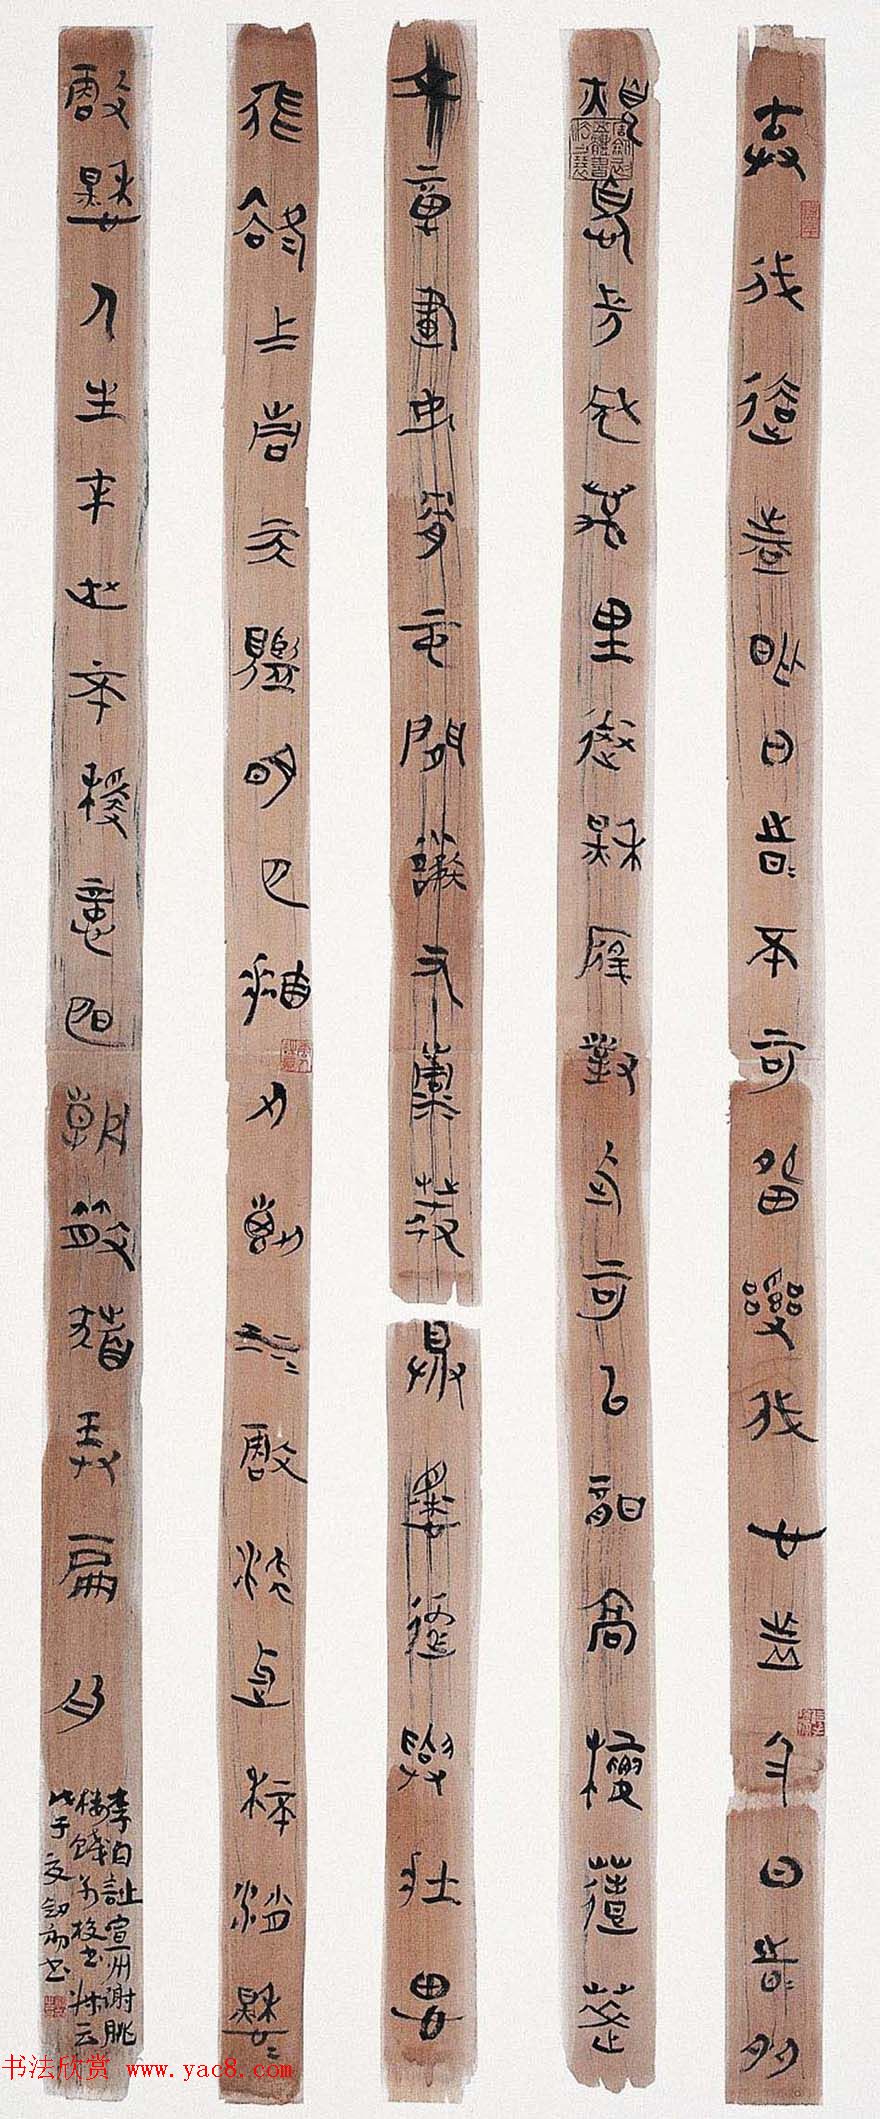 棄我去者昨日之日不可留亂我心者今日之日多
煩憂長風萬里送秋雁對此可以酣高樓蓬萊
文章建安骨中間小謝又清發俱懷逸興壯思
飛欲上青天覽明月抽刀斷水水更流舉杯銷愁愁
更愁人生在世不稱意明朝散髮弄扁舟
李白詩宣州謝朓
樓餞別校書叔雲
戊子夏劍初書
书法欣赏 www.yac8.com